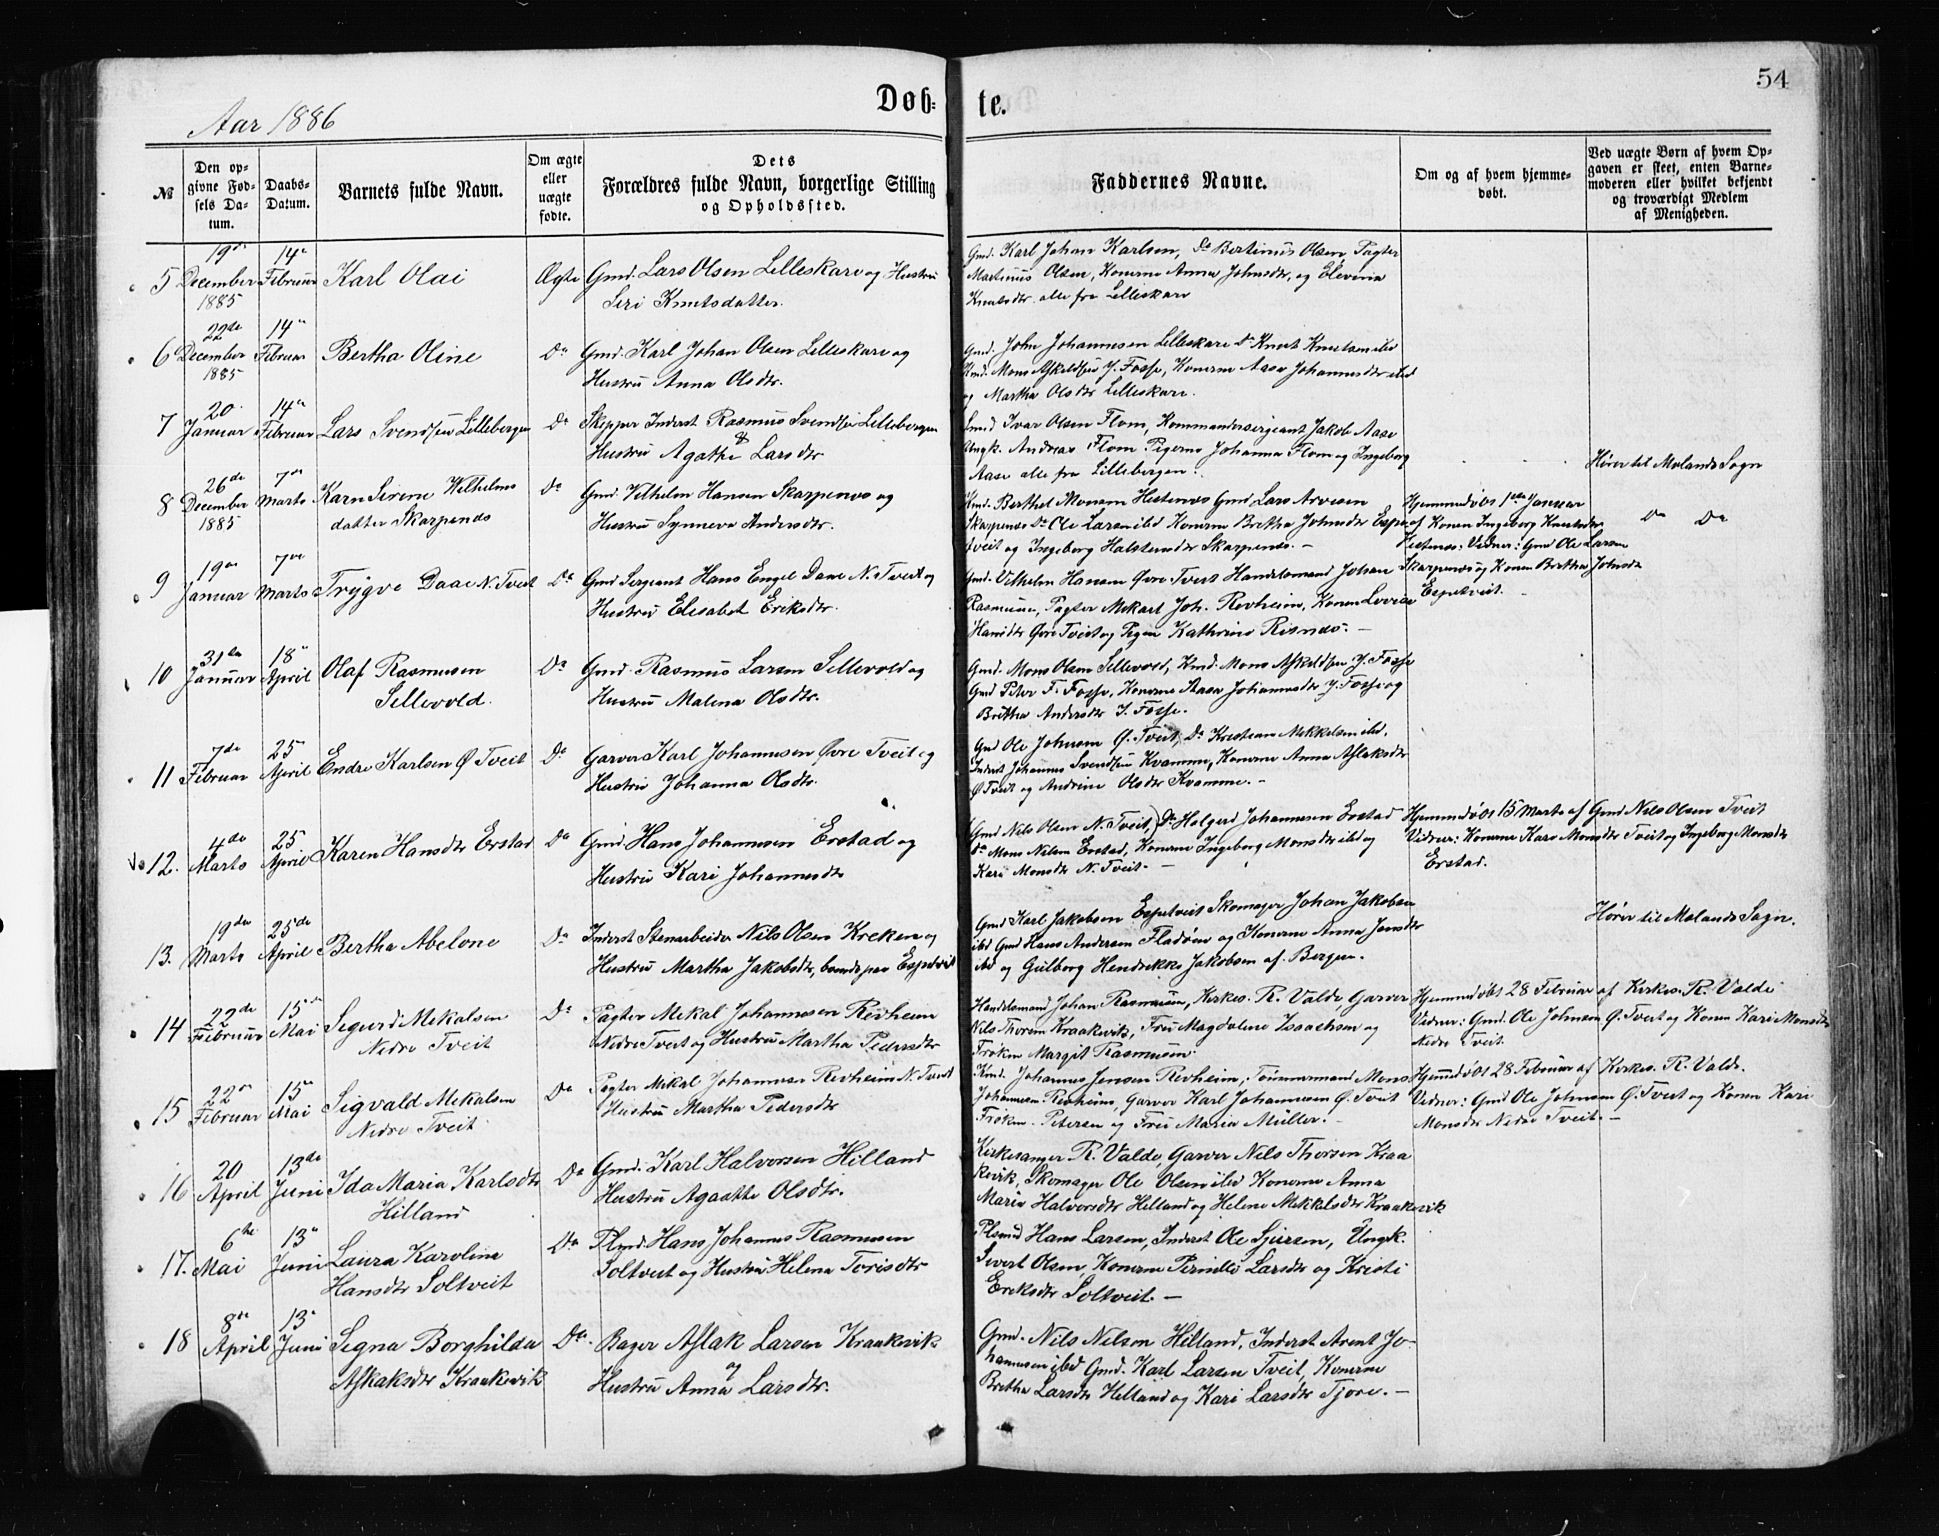 54
Døb-
te.
Aar 1886
№
Den op-
givne Fød-
sels Da-
tum.
Daabs-
Datum.
Barnets fulde Navn.
Om ægte
eller
uægte
fødte.
Dets
Forældres fulde Navn, borgerlige Stilling
og Opholdssted.
Faddernes Navne.
Om og af hvem hjemme-
døbt.
Ved uægte Børn af hvem Op-
gaven er skeet, enten Barne-
moderen eller hvilket bekjendt
og troværdigt Medlem
af Menigheden.
5
19de
December
1885
14de
Februar
Karl Olai
Ægte
Gmd. Lars Olsen Lilleskare og Hustru
Seri Knutsdatter.
Gmd. Karl Johan Karlsen, Do Bertinus Olsen, Pagter
Martinus Olsen, Konerne Anna Johnsdtr, og Elevina
Knutsdtr alle fra Lilleskare
6
22de
December
1885
14de
Februar
Bertha Oline
Do
Gmd. Karl Johan Olsen Lilleskare og
Hustru Anna Olsdtr.
Gmd. John Johannesen Lilleskare Do Knut Knutsen ibd
Kmd. Mons Askeldsen Y. Fosse, Konerne Aasa Johannesdtr ibd
og Martha Olsdtr Lilleskare.
7
20
Januar
14de
Februar
Lars Svendsen Lillebergen
Do
Skipper Inderst Rasmus Svendsen Lillebergen
&
Hustru Agathe Larsdtr
Smed Ivar Olsen Flom, Kommandersergeant Jakob Aase
Ungk. Andreas Flom Pigerne Johanna Flom og Ingeborg
Aase alle fra Lillebergen.
Hører til Molands Sogn
8
26de
December
1885
7de
Marts
Karn Sirene Wilhelms
datter Skarpenes
Do
Gmd. Vilhelm Hansen Skarpenes og
Hustru Synneva Andersdtr.
Kmd. Berthel Monsen Hestenes Gmd Lars Arvesen
Skarpenes Do Ole Larsen ibd Konerne Bretha Johnsdtr Espe-
tveit og Ingeborg Halstensdtr Skarpenes. -
Hjemmedøbt 1ste Januar
af Konen Ingeborg Knutsdtr
Hestenes: Vidner: Gmd Ole Larsen
Skarpenes og Konen Bretha Johnsdtr
Espetveit.
Do Do
9
19de
Januar
7de
Marts
Trygve Daae N. Tveit
Do
Gmd Sergeant Hans Engel Daae N. Tveit og
Hustru Elisabet Eriksdtr.
Gmd. Vilhelm Hansen Øvre Tveit Handelsmand Johan
Rasmussen, Pagter Mikael Joh. Revheim, Konen Lovise
Hansdtr Øvre Tveit og Pigen Kathrine Risnes. -
10
31te
Januar
18de
April
Olaf Rasmusen
Sellevold.
Do
Gmd. Rasmus Larsen Sellevold og
Hustru Malena Olsdtr.
Gmd. Mons Olsen Sellevold, Kmd. Mons Askeldsen Y. Fosse
Gmd Peter F. Fosse, Konerne Aasa Johannesdtr Y. Fosse og
Bretha Andersdtr I. Fosse.
11
7de
Februar
25
April
Endre Karlsen Ø Tveit
Do
Garver Karl Johannesen Øvre Tveit og
Hustru Johanna Olsdtr.
Gmd Ole Johnsen Ø. Tveit, Do Kristian Mikkelsen ibd.
Inderst Johannes Svendsen Kvamme, Konerne Anna Aslaksdtr
Ø Tveit og Andrine Olsdtr Kvamme. -
12.
4de
Marts
25
April
Karen Hansdtr Erstad
Do
Gmd. Hans Johannesen Erstad og
Hustru Kari Johannesdtr
Gmd Nils Olsen N. Tveit, Do Holgerd Johannesen Erstad
Do Mons Nilsen Erstad, Konerne Ingeborg Monsdtr ibd og
Kari Monsdtr N. Tveit -
Hjemmedøbt 15 Marts af Gmd Nils Olsen Tveit
Vidner: Konerne Kari Monsdtr Tveit og Ingeborg Monsdtr
Erstad.
13.
19de
Marts
25de
April
Bertha Abelone
Do
Inderst Stenarbeider Nils Olsen Kreken og
Hustru Martha Jakobsdtr, boende paa Espetveit
Gmd Karl Jakobsen Espetveit Skomager Johan Jakobsen
ibd Gmd Hans Andersen Fladøen og Konerne Anna Jonsdtr
ibd og Gulborg Hendrikke Jakobsen af Bergen.
Hører til Molands Sogn.
14
22de
Februar
15de
Mai
Sigurd Mikalsen
Nedre Tveit
Do
Pagter Mikal Johannesen Revheim
Nedre Tveit og Hustru Martha Pedersdtr
Handelsmand Johan Rasmusen, Kirkes. R. Valde, Garver
Nils Thorsen Kraakevik, Fru Magdalene Isaachsen og
Frøken Margit Rasmusen.
Hjemmedøbt 28 Februar af Kirkes. R. Valde
Vidner: Gmd. Ole Johnsen Ø. Tveit og Konen Kari Monsdtr
Nedre Tveit
15
22de
Februar
15de
Mai
Sigvald Mekalsen
Nedre Tveit
Do
Pagter Mikal Johannesen Revheim N. Tveit
Hustru Martha Pedersdtr
Kmd. Johannes Jensen Revheim, Tømmermand Mons
Johannesen Revheim, Garver Karl Johannesen Ø. Tveit
Frøken Petersen og Frue Maria Müller. -
Hjemmedøbt 28 Februar af Kirkes. R. Valde.
Vidner: Gmd Ole Johnsen Ø. Tveit og Konen Kari
Monsdtr Nedre Tveit. -
16
20
April
13de
Juni
Ida Maria Karlsdtr
Hilland
Do
Gmd. Karl Halvorsen Hilland
Hustru Agaatte Olsdtr.
Kirkesanger R. Valde, Garver Nils Thorsen Kraa
kevik, Skomager Ole Olsen ibd Konerne Anna
Maria Halvorsdtr Helland og Helene Mekkelsdtr Kraakevik
17.
6te
Mai
13de
Juni
Laura Karolina
Hansdtr Soltveit
Do
Plmd. Hans Johannes Rasmusen
Soltveit og Hustru Helena Torisdtr
Plsmd Hans Larsen, Inderst Ole Sjursen, Ungk.
Sivert Olsen, Konerne Pernille Larsdtr og Kristi
Eriksdtr Soltveit. -
18
8de
April
13de
Juni
Segna Borghilda
Aslaksdtr Kraakevik
Do.
Bager Aslak Larsen Kraakevik
og
Hustru Anna Larsdtr.
Gmd. Nils Nilsen Hilland, Inderst Arent Jo-
hannesen ibd Gmd. Karl Larsen Tveit, Konerne
Bretha Larsdtr Helland og Kari Larsdtr Tjore. -